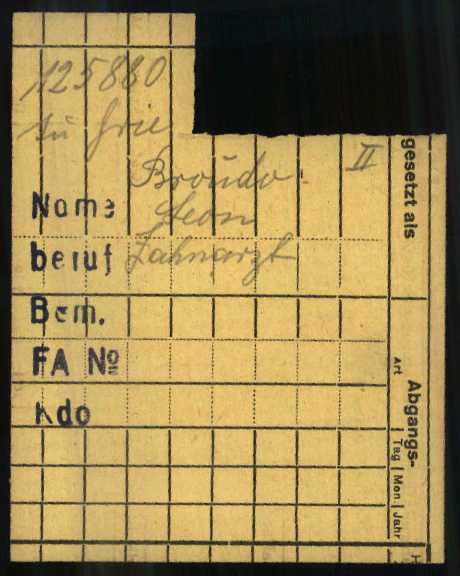 125880
Broudo. II
Name Leon
beruf Zahnarzt
Bem.
FA No
Kdo
gesetzt als
Art
Abgangs-
Tag | Mon. | Jahr